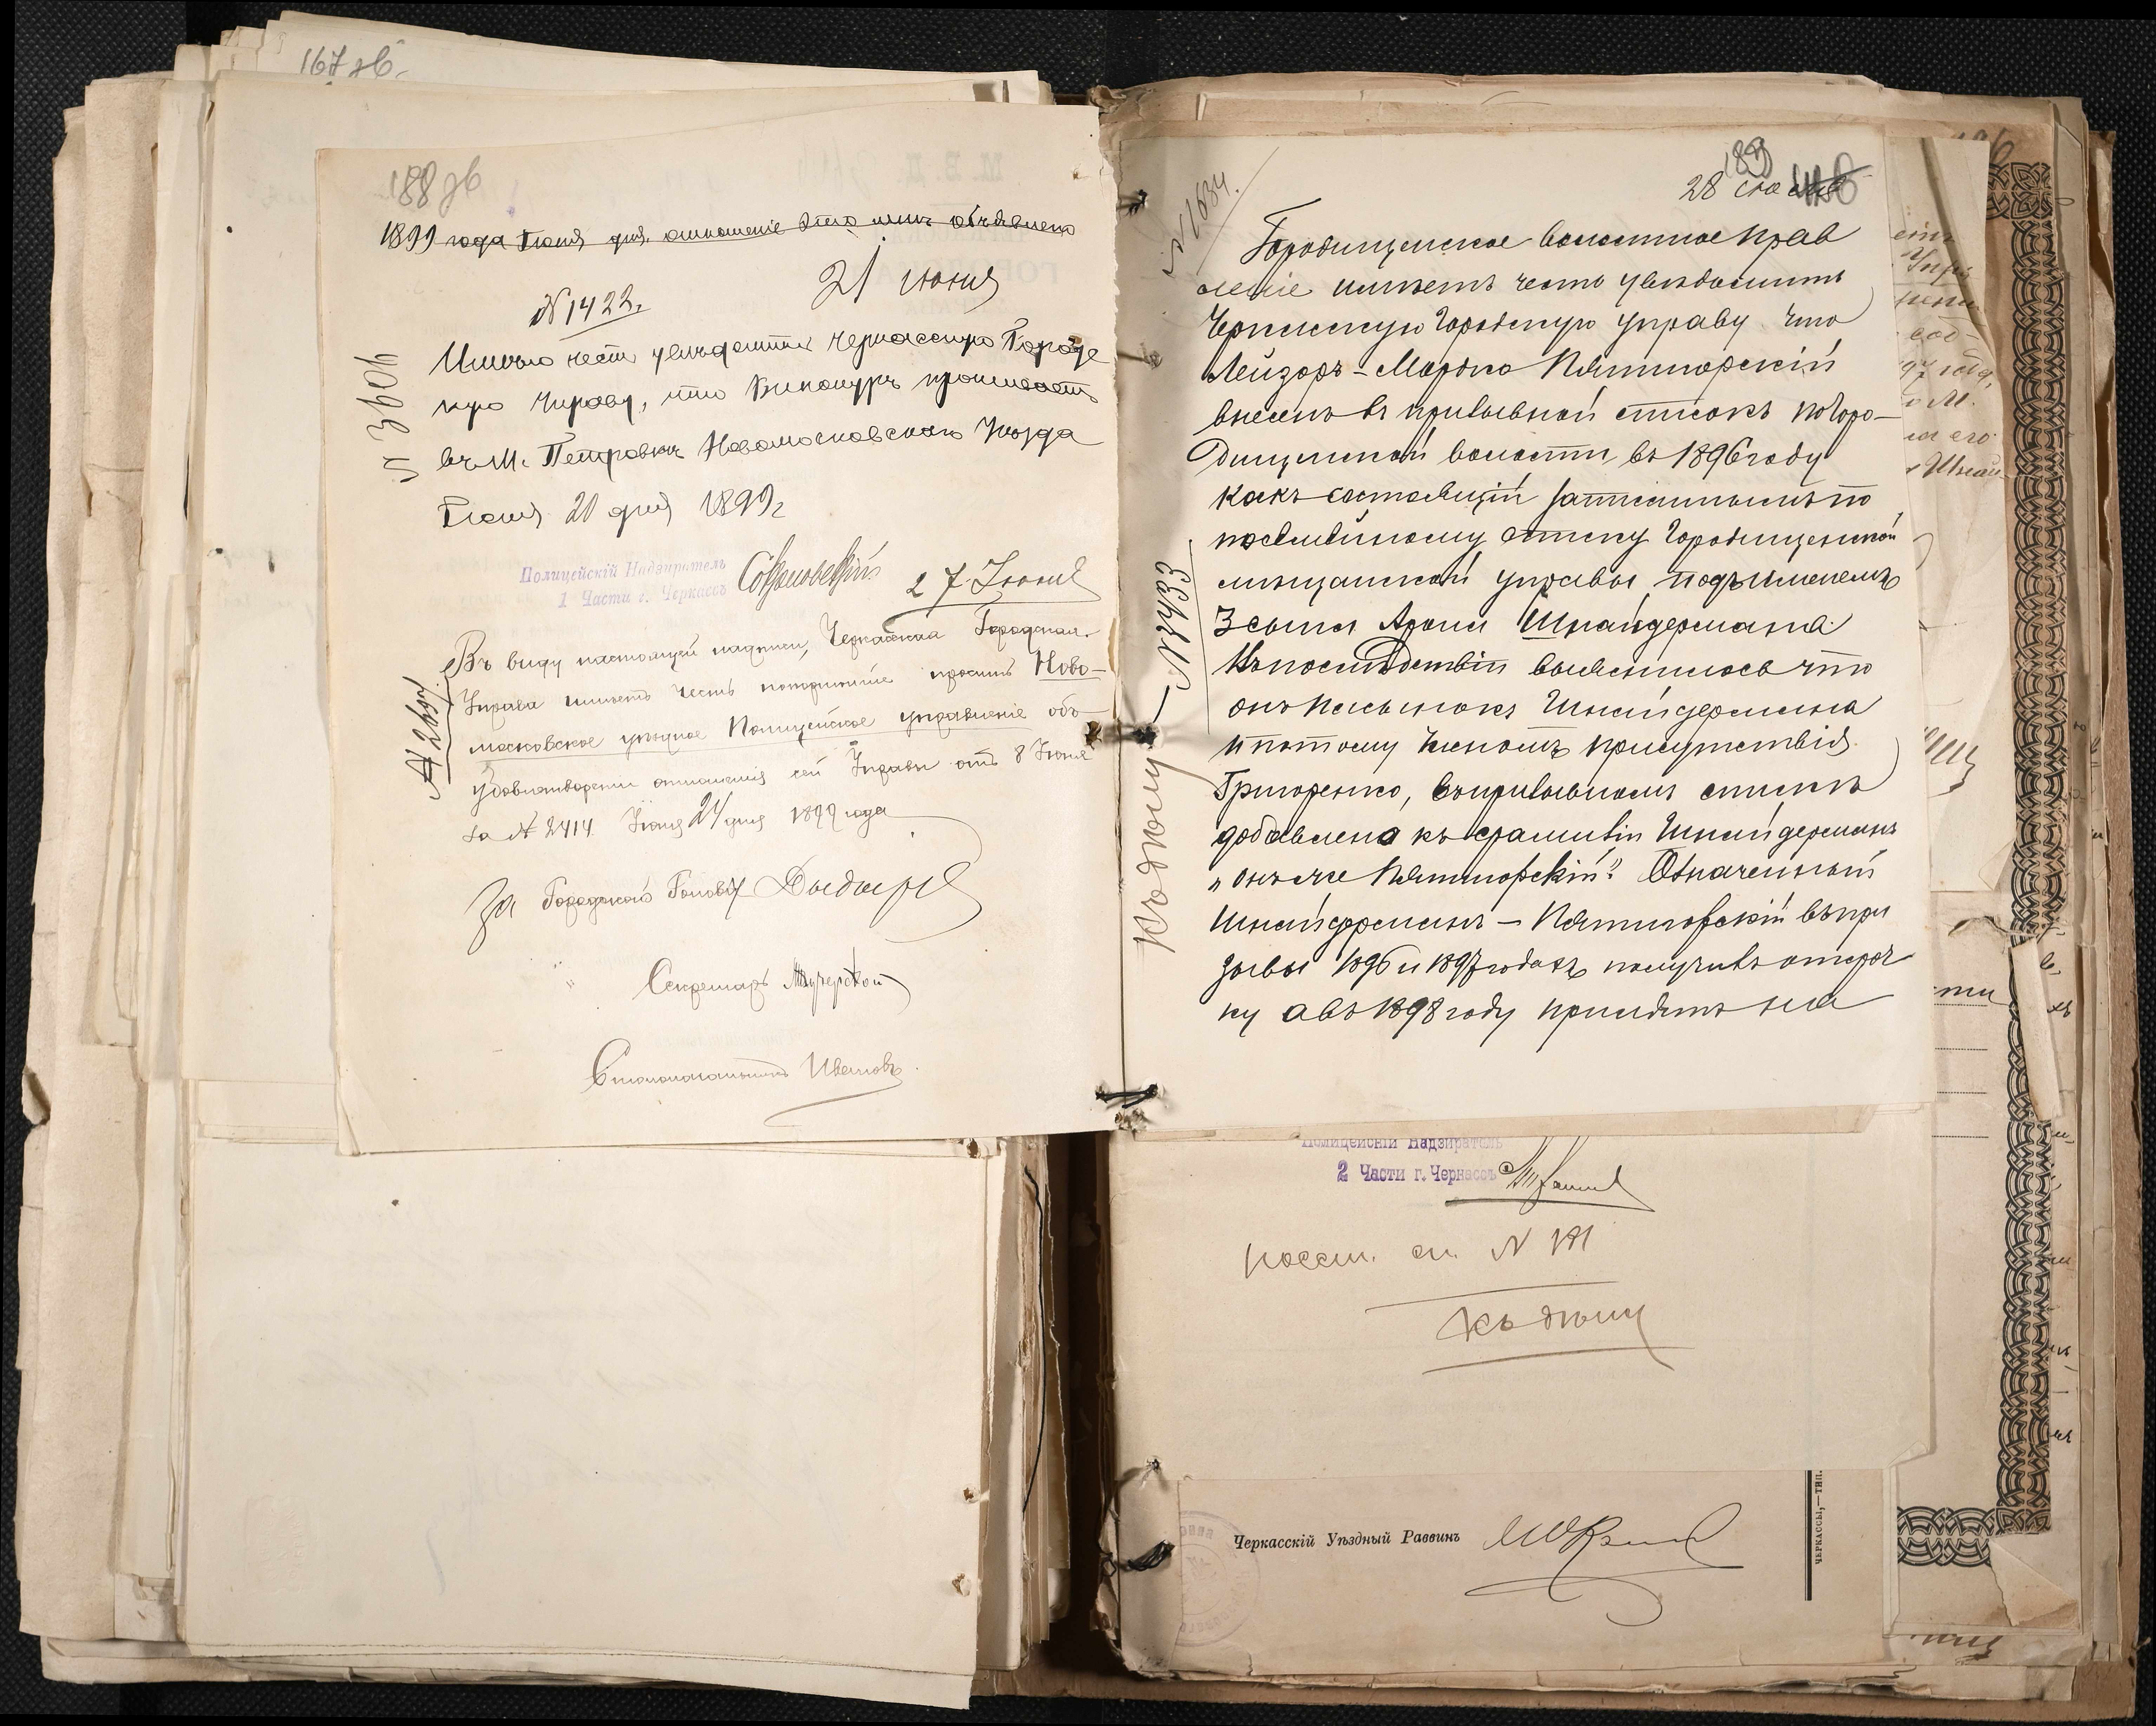 167 об.
188 об
1899 года Іюня дня. отношеніе это мнѣ объявлено
21 июня
№ 1422.
Имѣю честь увѣдомить Черкасскую Городс
кую Управу, что Винокуръ проживаетъ
въ м. Петровкѣ Новомосковскаго Уѣзда
Іюня 20 дня 1899 г
Полицейскій Надзиратель
1 Части г. Черкассъ
27 Іюня
Въ виду настоящей надписи, Черкасская Городская
Управа имѣетъ честь покорнѣйше просить Ново-
московское уѣздное Полицейское управленіе объ
удовлетвореніи отношенія сей Управы отъ 8 Іюня
за № 2414. Іюня 21 дня 1899 года
За Городского Голову
Секретарь
Столоначальникъ Ивановъ
189
28 июня
№ 1684.
Городищенское волостное Прав
леніе имѣетъ честь увѣдомить
Черкасскую Городскую управу что
Лейзоръ-Мордко Пятигорскій
внесенъ въ призывной списокъ по Горо-
дищенской волости въ 1896 году
какъ состоящій записаннымъ по
посемейному списку Городищенской
мѣщанской управы подъ именемъ
3 сына Арона Шнайдермана
Впослѣдствіи выяснилось что
онъ пасынокъ Шнайдермана
и потому членомъ присутствія
Григоренко, въ призывномъ спискѣ
добавлено къ фамиліи Шнайдерманъ
„онъ же Пятигорскій". Означенный
Шнайдерманъ - Пятигорскій въ при
зывы 1896 и 1897 годахъ получивъ отсроч
ку а въ 1898 году принятъ на
№ 3433
Къ дѣлу
Полицейскій Надзиратель
2 Части г. Черкассъ
посем. сп. № 181
Къ дѣлу
Черкасскій Уѣздный Раввинъ
ЧЕРКАССЫ,—ТИП.